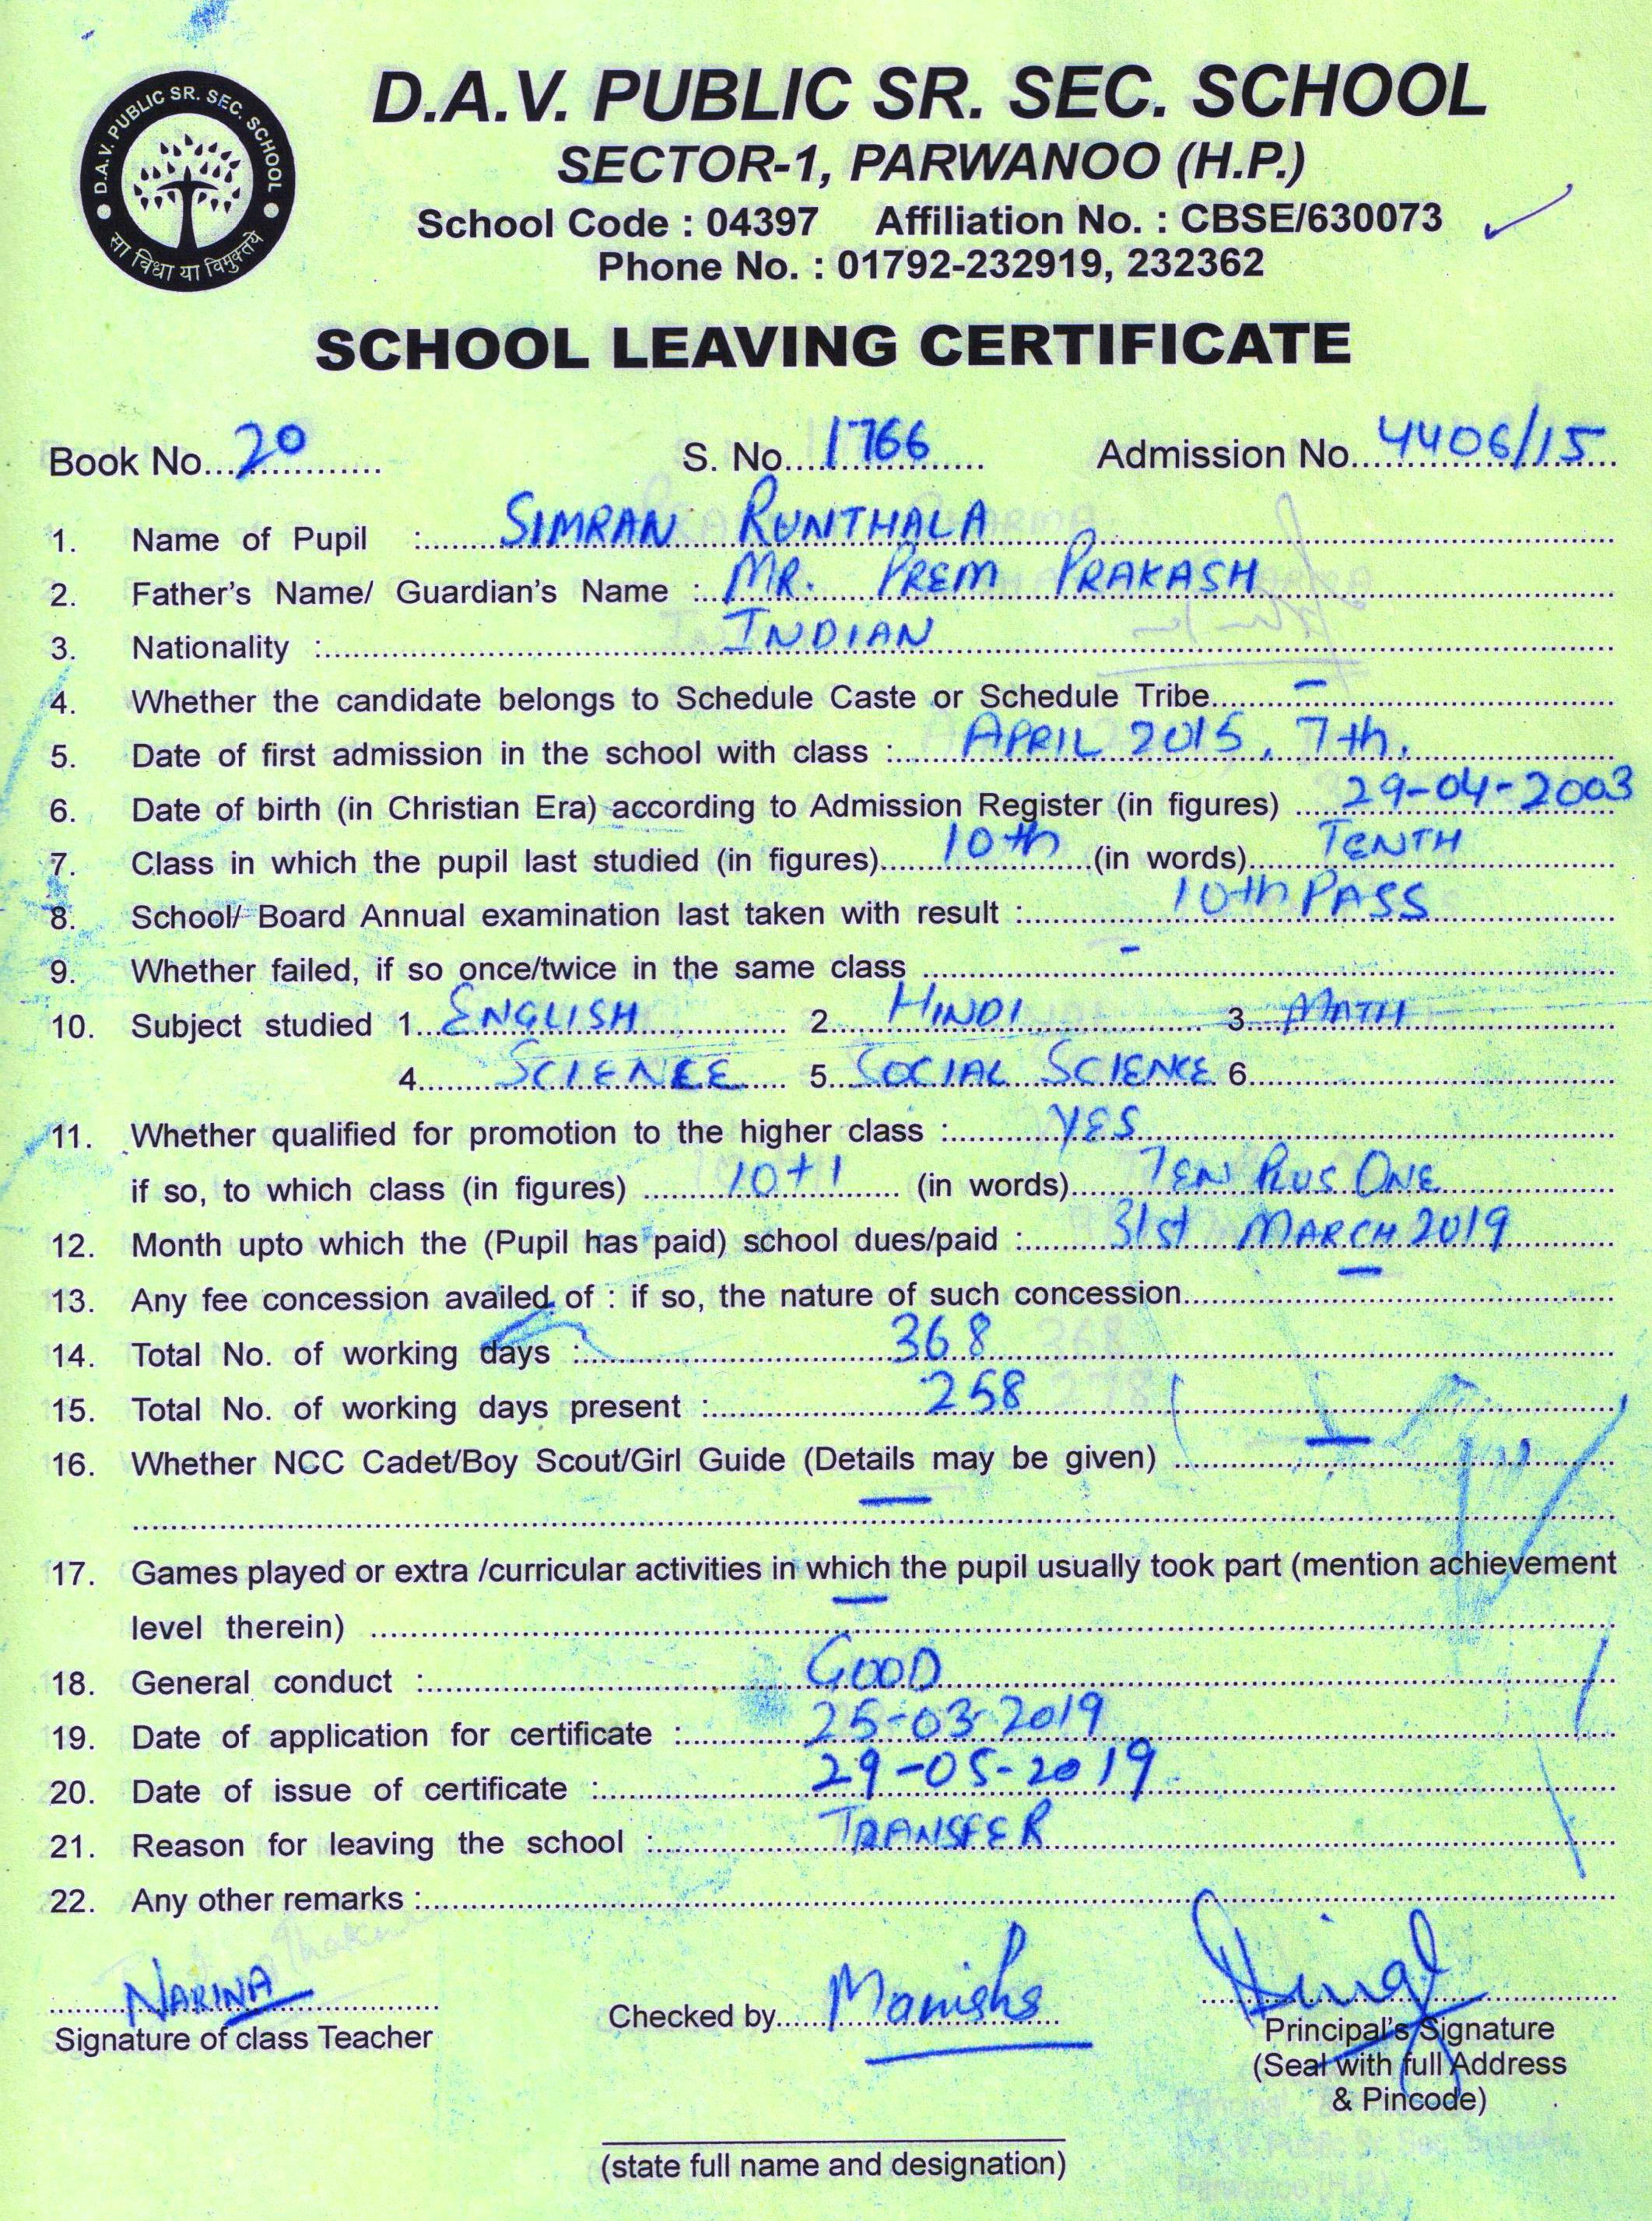 D.A.V. PUBLIC SR. SEC. SCHOOL
सा विद्या या विमुक्तये
D.A.V. PUBLIC SR. SEC. SCHOOL
SECTOR-1, PARWANOO (H.P.)
School Code : 04397 Affiliation No. : CBSE/630073
Phone No. : 01792-232919, 232362
SCHOOL LEAVING CERTIFICATE
Book No. 20 S. No. 1766 Admission No. 4406/15
1. Name of Pupil : SIMRAN RUNTHALA
2. Father's Name/ Guardian's Name : MR. PREM PRAKASH
3. Nationality : INDIAN
4. Whether the candidate belongs to Schedule Caste or Schedule Tribe. –
5. Date of first admission in the school with class : APRIL 2015, 7th.
6. Date of birth (in Christian Era) according to Admission Register (in figures) 29-04-2003
7. Class in which the pupil last studied (in figures) 10th (in words) TENTH
8. School/ Board Annual examination last taken with result : 10th PASS
9. Whether failed, if so once/twice in the same class -
10. Subject studied 1. ENGLISH 2. HINDI 3. MATH
4. SCIENCE 5. SOCIAL SCIENCE 6.
11. Whether qualified for promotion to the higher class : YES
if so, to which class (in figures) 10+1 (in words) TEN PLUS ONE
12. Month upto which the (Pupil has paid) school dues/paid : 31st MARCH 2019
13. Any fee concession availed of : if so, the nature of such concession. –
14. Total No. of working days : 368
15. Total No. of working days present : 258
16. Whether NCC Cadet/Boy Scout/Girl Guide (Details may be given) –
–
17. Games played or extra /curricular activities in which the pupil usually took part (mention achievement
level therein) –
18. General conduct : GOOD
19. Date of application for certificate : 25-03-2019
20. Date of issue of certificate : 29-05-2019
21. Reason for leaving the school : TRANSFER
22. Any other remarks :
NARINA Manisha
Signature of class Teacher Checked by Principal's Signature
(Seal with full Address
& Pincode)
(state full name and designation)